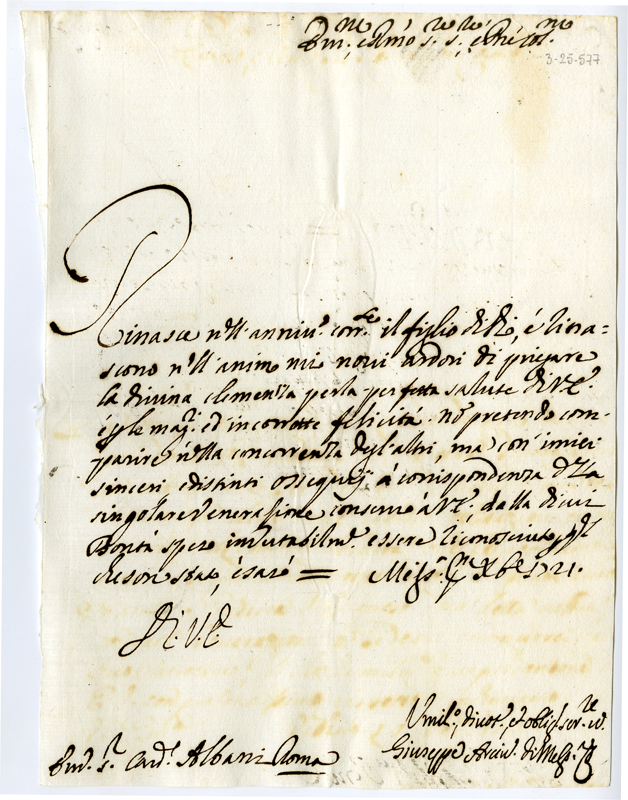 Em.mo, e Rmo S.re S.re, e Pne Col.mo
3-25-577
Rinasce nell'anniv.o corr.te il figlio di Dio, é rina=
scono nell'animo mio novi ardori di pregare
la divina clemenza per la perfetta salute di V.E.
é p le mag.ri ed incorrotte felicitá. nõ pretendo com-
parire nella concorrenza degl'altri, ma con i miei
sinceri, e distinti ossequij á corrispondenza della
singolare venerazione conservo á V.E., dalla di cui
bontá spero invariabilm.e essere riconosciuto, p q.l
che son stato, é saró = Mess.a Xbre 1721.
Di V.E.
Umil.o, divot.o, et oblig. ser.re v.
Em.o S.r Card.l Albani Roma
Giuseppe Arciv. di Mess.a